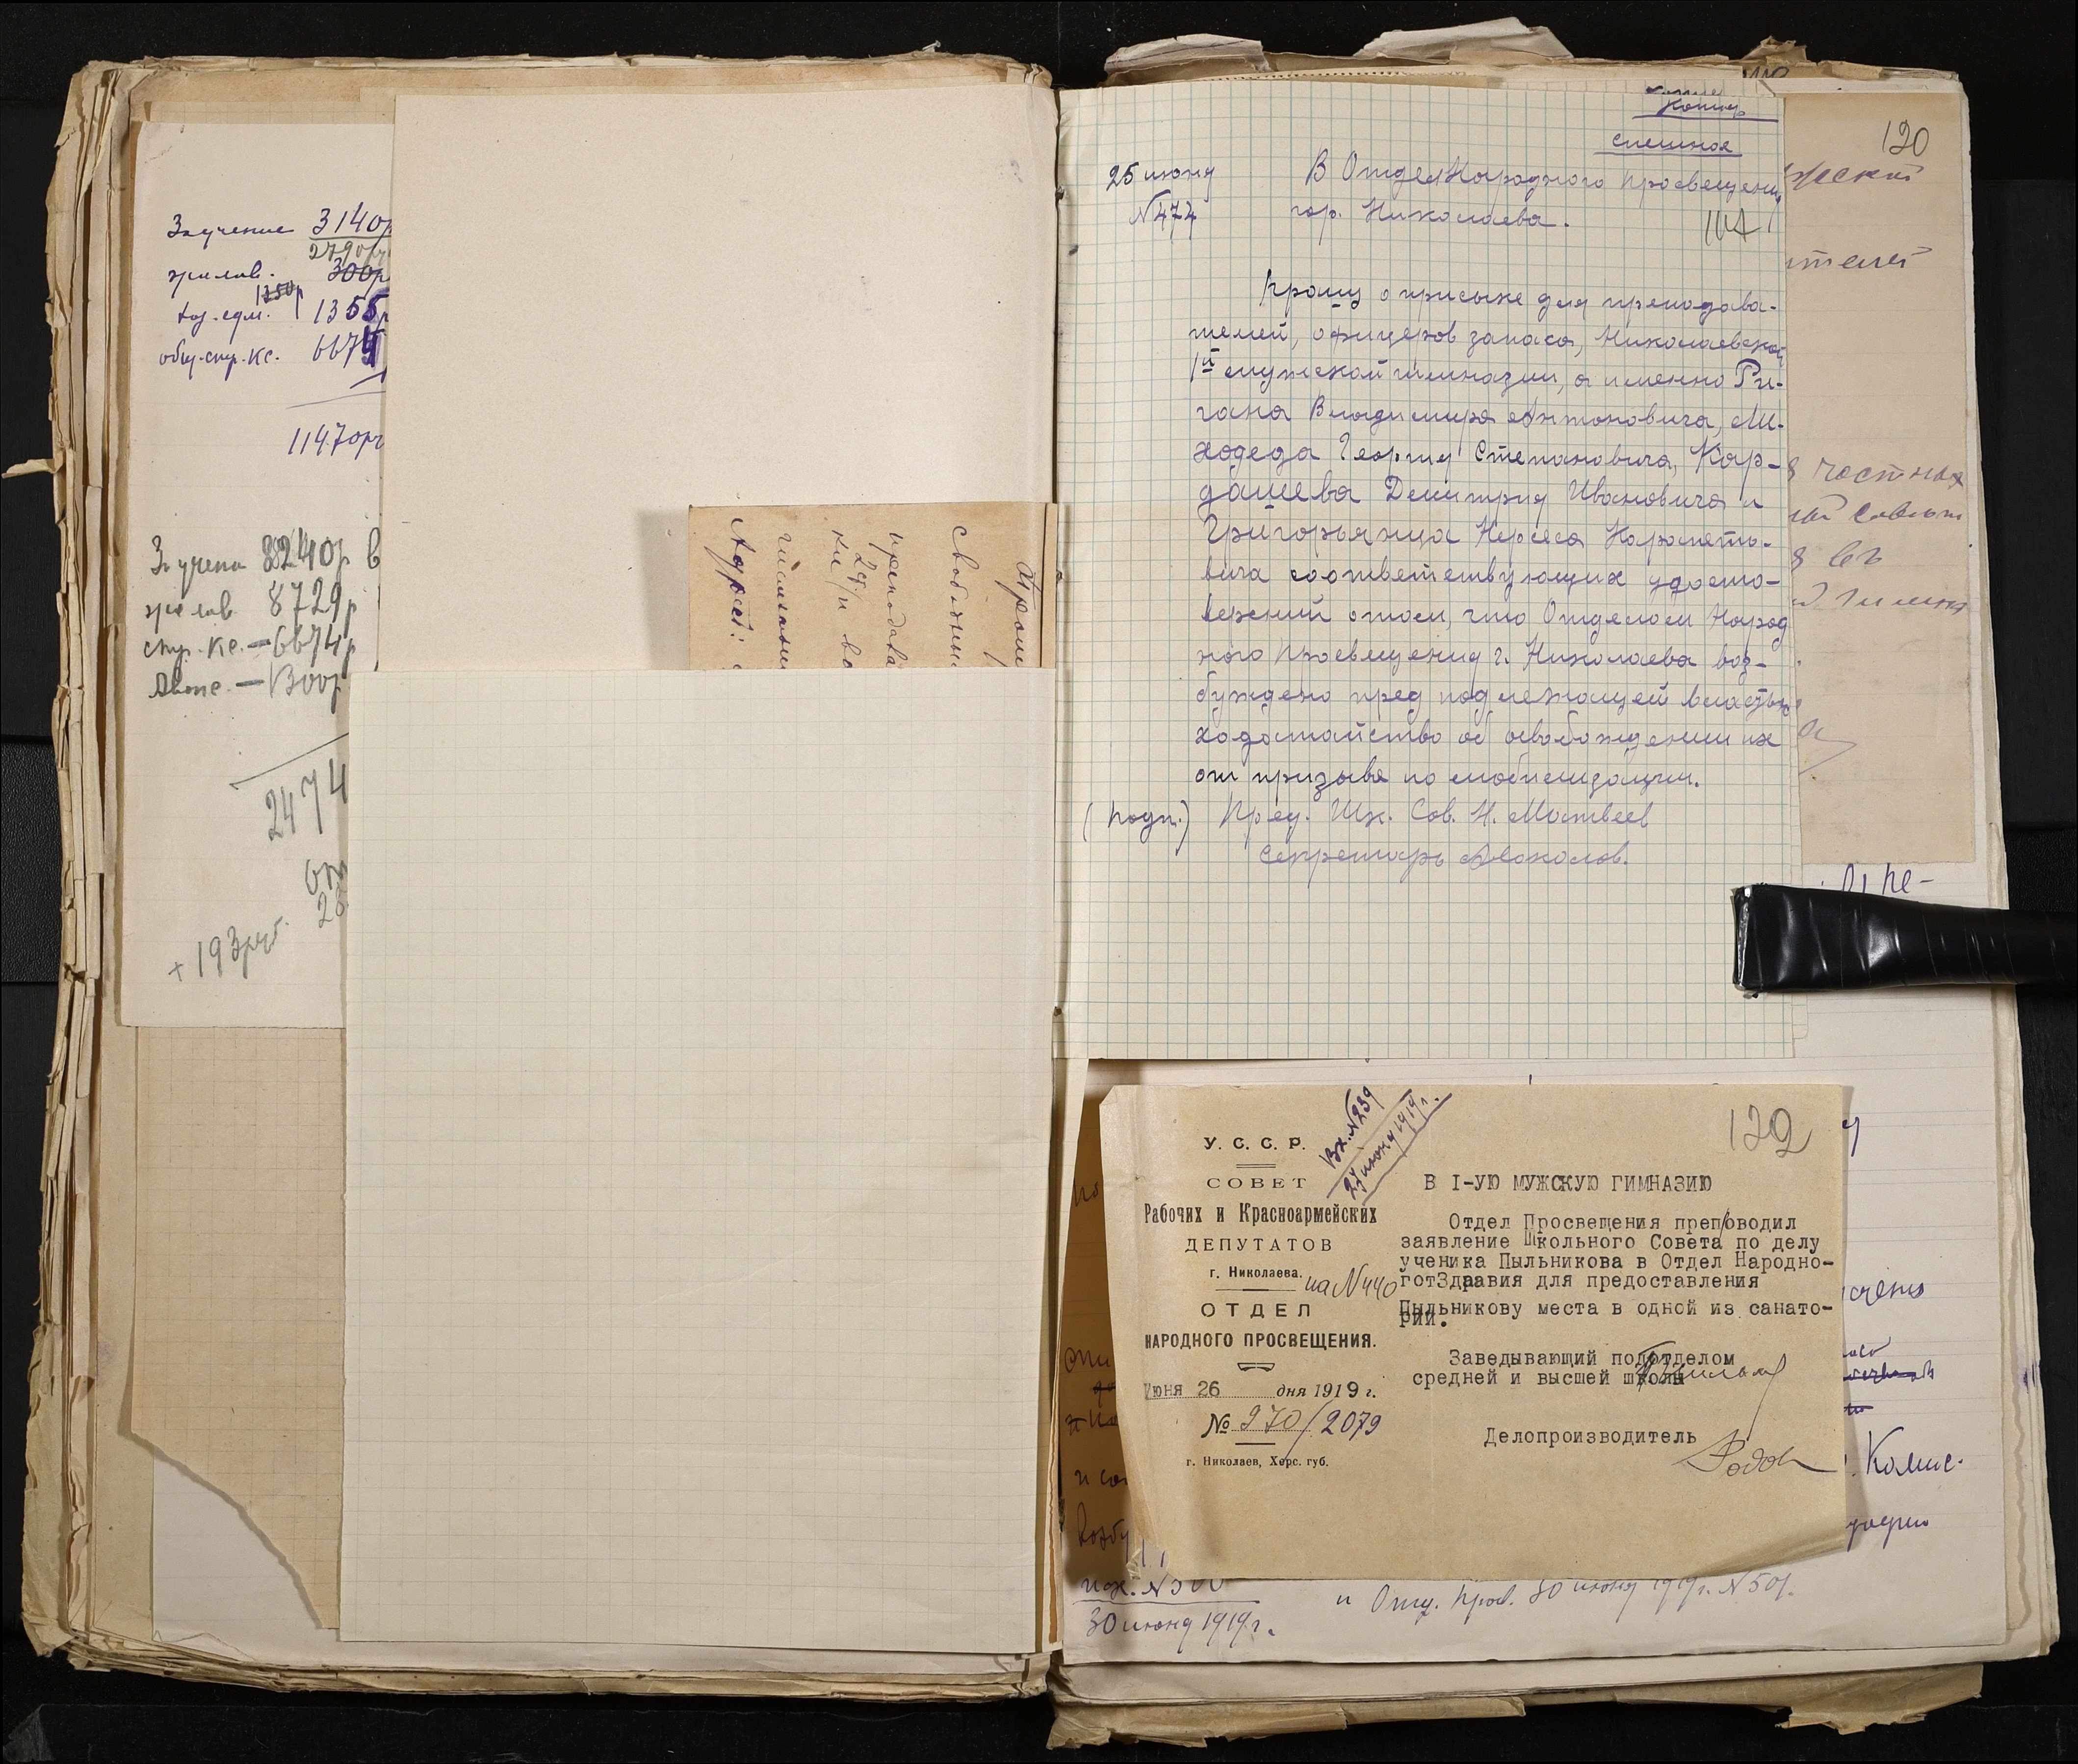 За учение 3140р
2790р
жалов. 300р
1350р
хоз. сум. 1355р
общ. стр. кс. 6674
11470р
За учение 8240р в
жалов 8729р
стр. кс. — 6674р
1300р
2474
28
+ 193руб.
свободных
преподава
2ой
Адрес:
120
жской
ителей
частных
въ
Копия
спешное
25 июня
В Отдел Народного Просвещения
№ 474
гор. Николаева.
Прошу о присылке для преподава-
телей, офицеров запаса, Николаевской
1й мужской гимназии, а именно Ри-
гана Владимира Антоновича, Ми-
ходеда Георгия Степановича, Кар-
дашева Димитрия Ивановича и
Григорьянца Нерсеса Карапето-
вича соответствующих удосто-
верений о том, что Отделом Народ
ного Просвещения г. Николаева воз-
буждено пред подлежащей властью
ходатайство об освобождении их
от призыва по мобилизации.
(подп.) Пред. Шк. Сов. Н. Матвеев
Секретарь Соколов.
132
Вх. №239
27 июня 1919 г.
У. С. С. Р.
СОВЕТ
Рабочих и Красноармейских
ДЕПУТАТОВ
г. Николаева.
на № 440
ОТДЕЛ
НАРОДНОГО ПРОСВЕЩЕНИЯ.
Июня 26 дня 1919 г.
№ 270/2079
г. Николаев, Херс. губ.
В I-УЮ МУЖСКУЮ ГИМНАЗИЮ
Отдел Просвещения препроводил
заявление Школьного Совета по делу
ученика Пыльникова в Отдел Народно-
го Здравия для предоставления
Пыльникову места в одной из санато-
рий.
Заведывающий подотделом
средней и высшей школы
Делопроизводитель
Комис.
исх. №500
30 июня 1919 г.
и Отд. Прос. 30 июня 1919 г. №501.